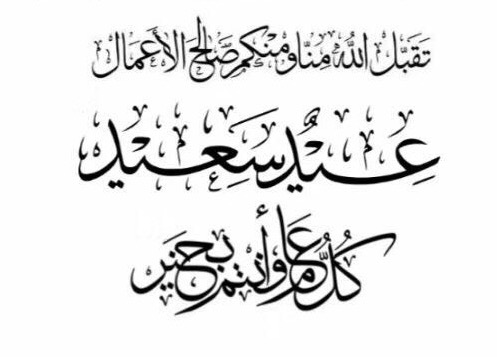 تَقَبَّل اللّٰه مِنّا و مِنْكُم صَالح الأَعْمَال
عِيدٌ سَعِيد
كُلُّ عَام وأَنتُم بِخَير